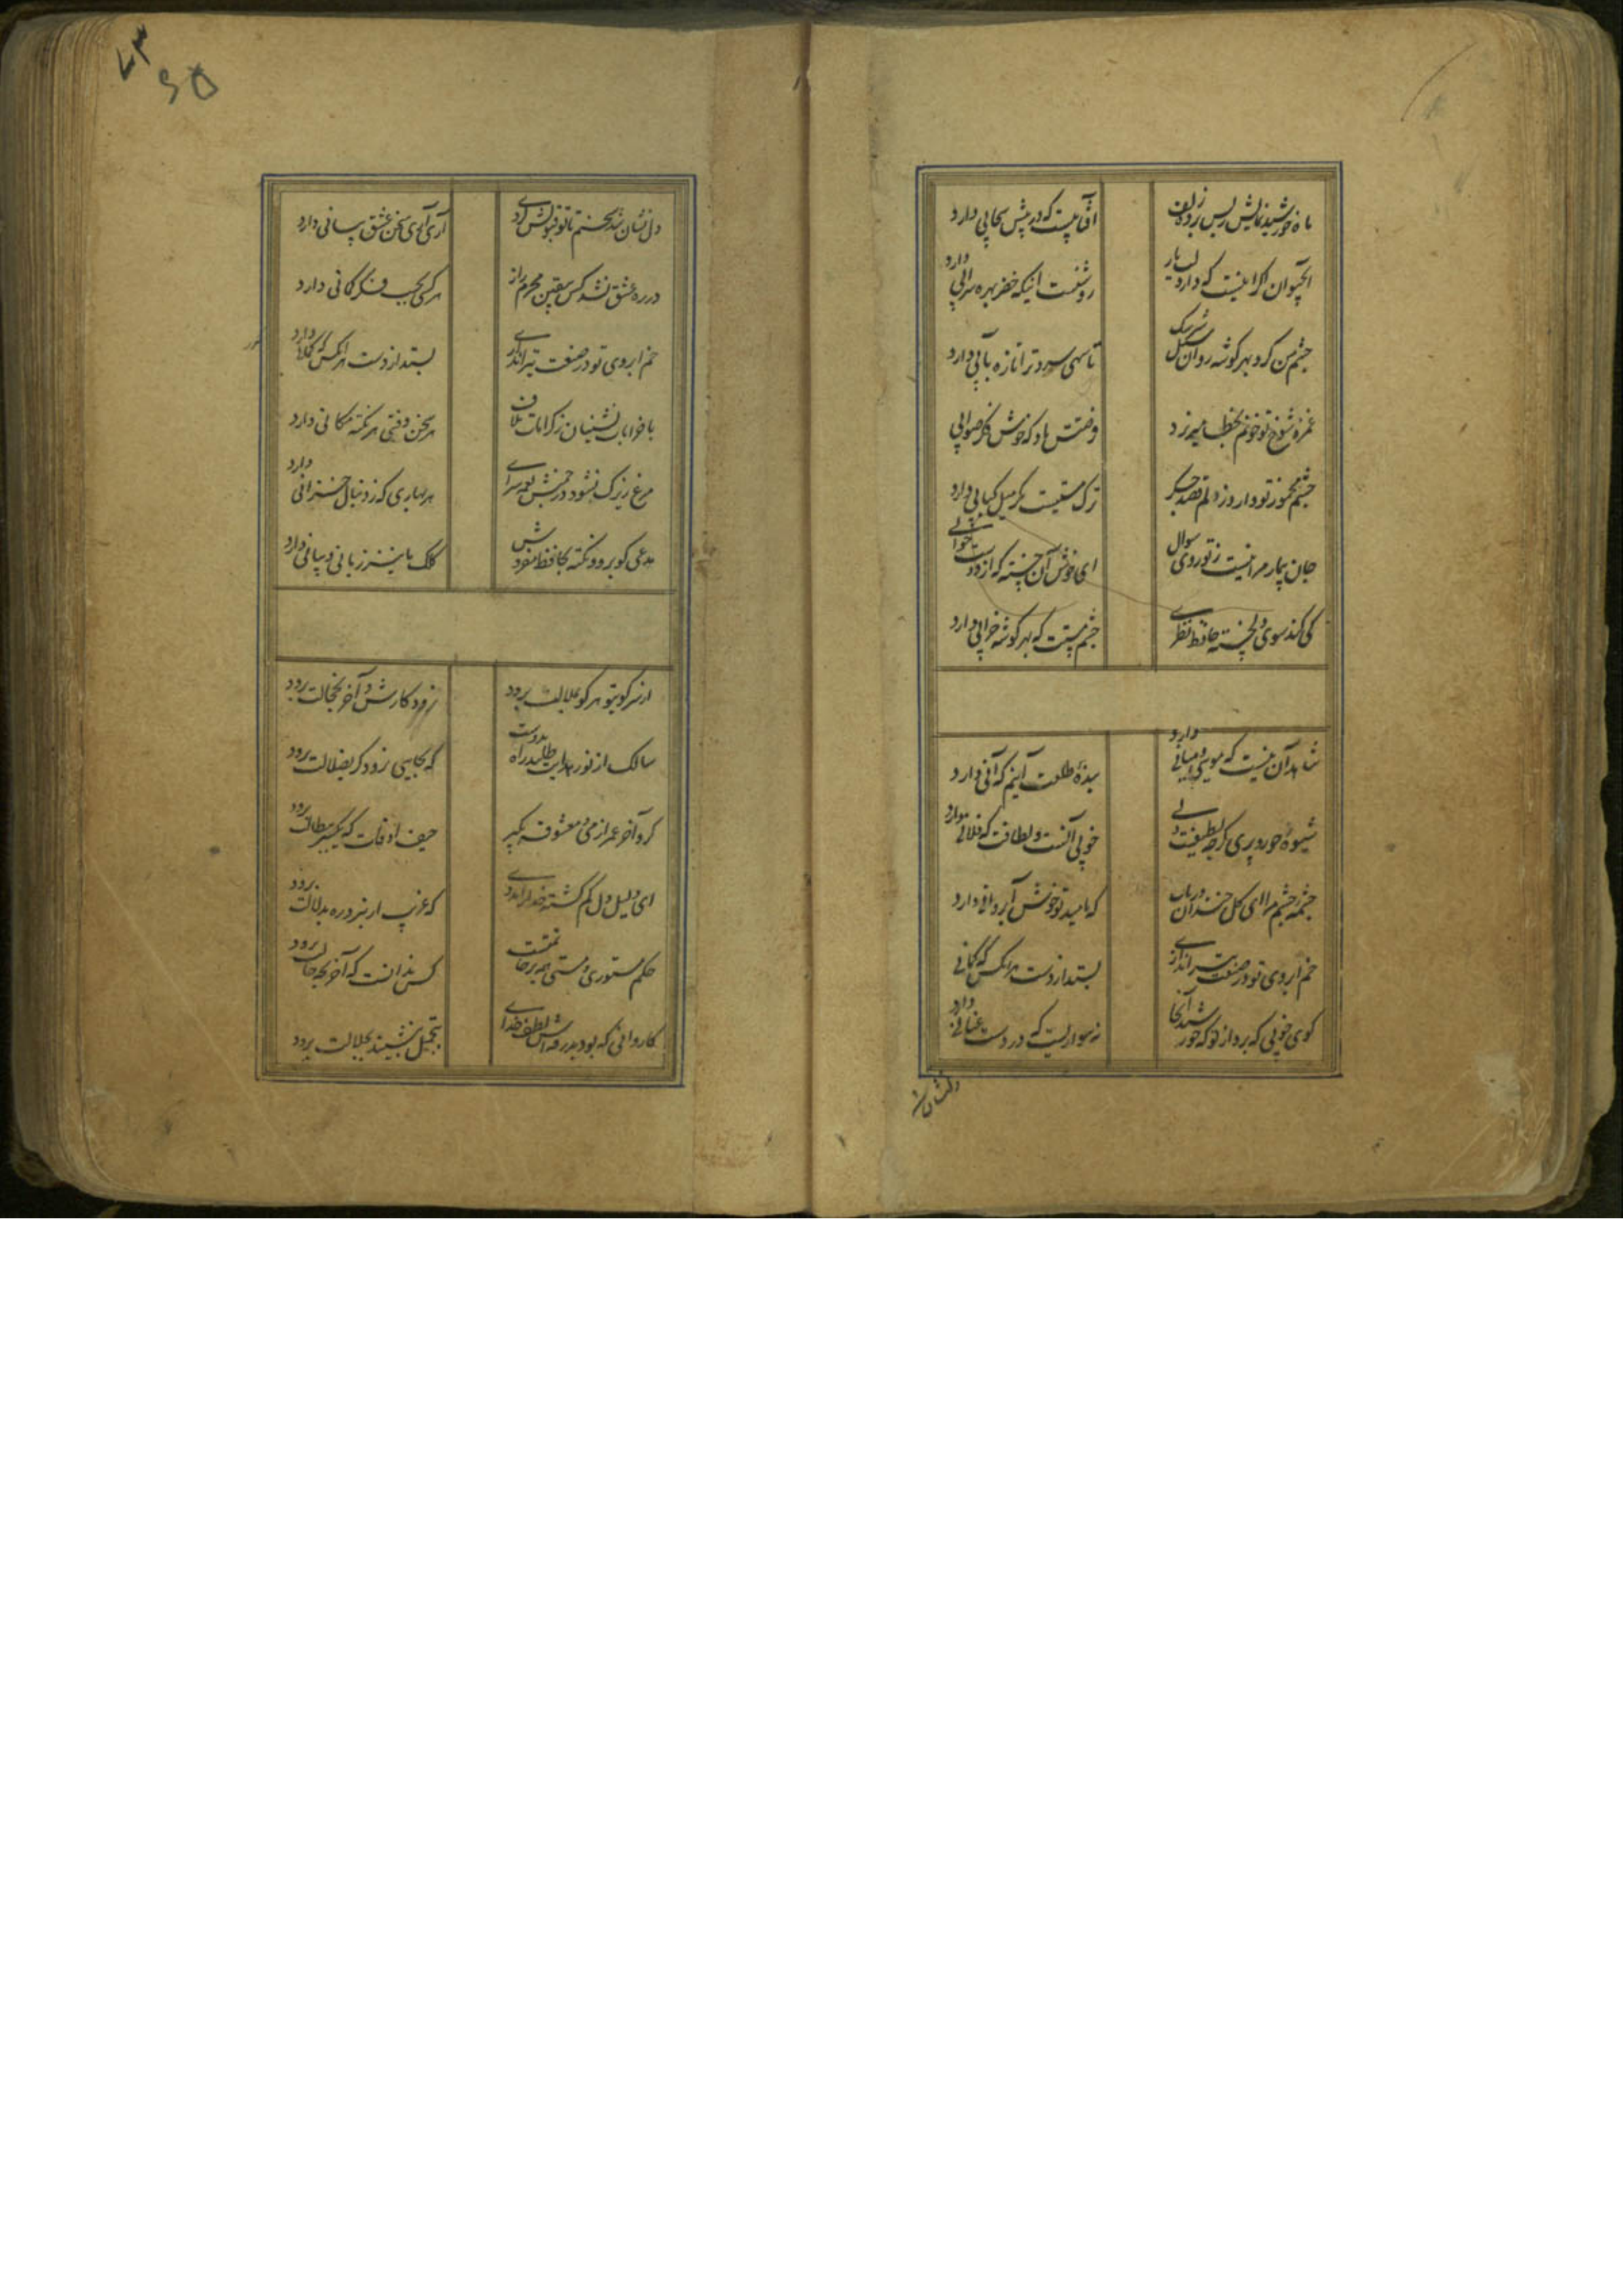 ماه خورشید نمایش ز پس پرده زلف
آفتابیست که در پیش سحابی دارد
آب حیوان اگر اینست که دارد لب یار
روشنست اینکه خضر بهره سرابی دارد
چشم من کرد بهر گوشه روان سیل سرشک
تا سهی سرو ترا تازه بآبی دارد
غمزه شوخ تو خونم بخطا میریزد
فرصتش باد که خوش فکر صوابی
چشم مخمور تو دارد ز دلم قصد جگر
ترک مستیست مگر میل کبابی دارد
جان بیمار مرا نیست ز تو روی سوال
ای خوش آن خسته که از دوست جوابی
کی کند سوی دل خسته حافظ نظری
چشم مستت که بهر گوشه خرابی دارد
شاهد آن نیست که مویی و میانی دارد
بنده طلعت آنیم که آنی دارد
شیوه حور و پری گرچه لطیفست ولی
خوبی آنست و لطافت که فلانی دارد
چشمه چشم مرا ای گل خندان دریاب
که بامید تو خوش آب روانی دارد
خم ابروی تو در صنعت تیراندازی
بستد از دست هر آنکس که کمانی
گوی خوبی که برد از تو که خورشید آنجا
نه سواریست که در دست عنانی دارد
دلنشان شد
۷۳
۶۵
دل نشان شد سخنم تا تو قبولش کردی
آری آری سخن عشق نشانی دارد
در ره عشق نشد کس بیقین محرم راز
هر کسی بر حسب فکر گمانی دارد
خم ابروی تو در صنعت تیراندازی
بستد از دست هر آنکس که کمانی دارد
با خرابات نشینان ز کرامات ملاف
هر سخن وقتی و هر نکته مکانی دارد
مرغ زیرک نشود در چمنش نغمه سرای
هر بهاری که ز دنبال خزانی دارد
مدعی گو برو و نکته بحافظ مفروش
کلک ما نیز زبانی و بیانی دارد
از سر کوی تو هر کو بملالت برود
نرود کارش و آخر بخجالت برود
سالک از نور هدایت طلبد راه بدوست
که بجایی نرود گر بضلالت برود
گرو آخر عمر از می و معشوقه بگیر
حیف اوقات که یکسر ببطالت برود
ای دلیل دل گم گشته خدا را مددی
که غریب ار نبرد ره بدلالت برود
حکم مستوری و مستی همه بر خاتمتست
کس ندانست که آخر بچه حالت برود
کاروانی که بود بدرقه اش لطف خدای
بتجمل بنشیند بجلالت برود